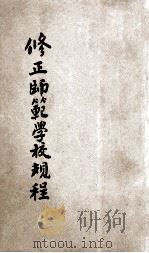 修正師範學校規程
mtoou.info